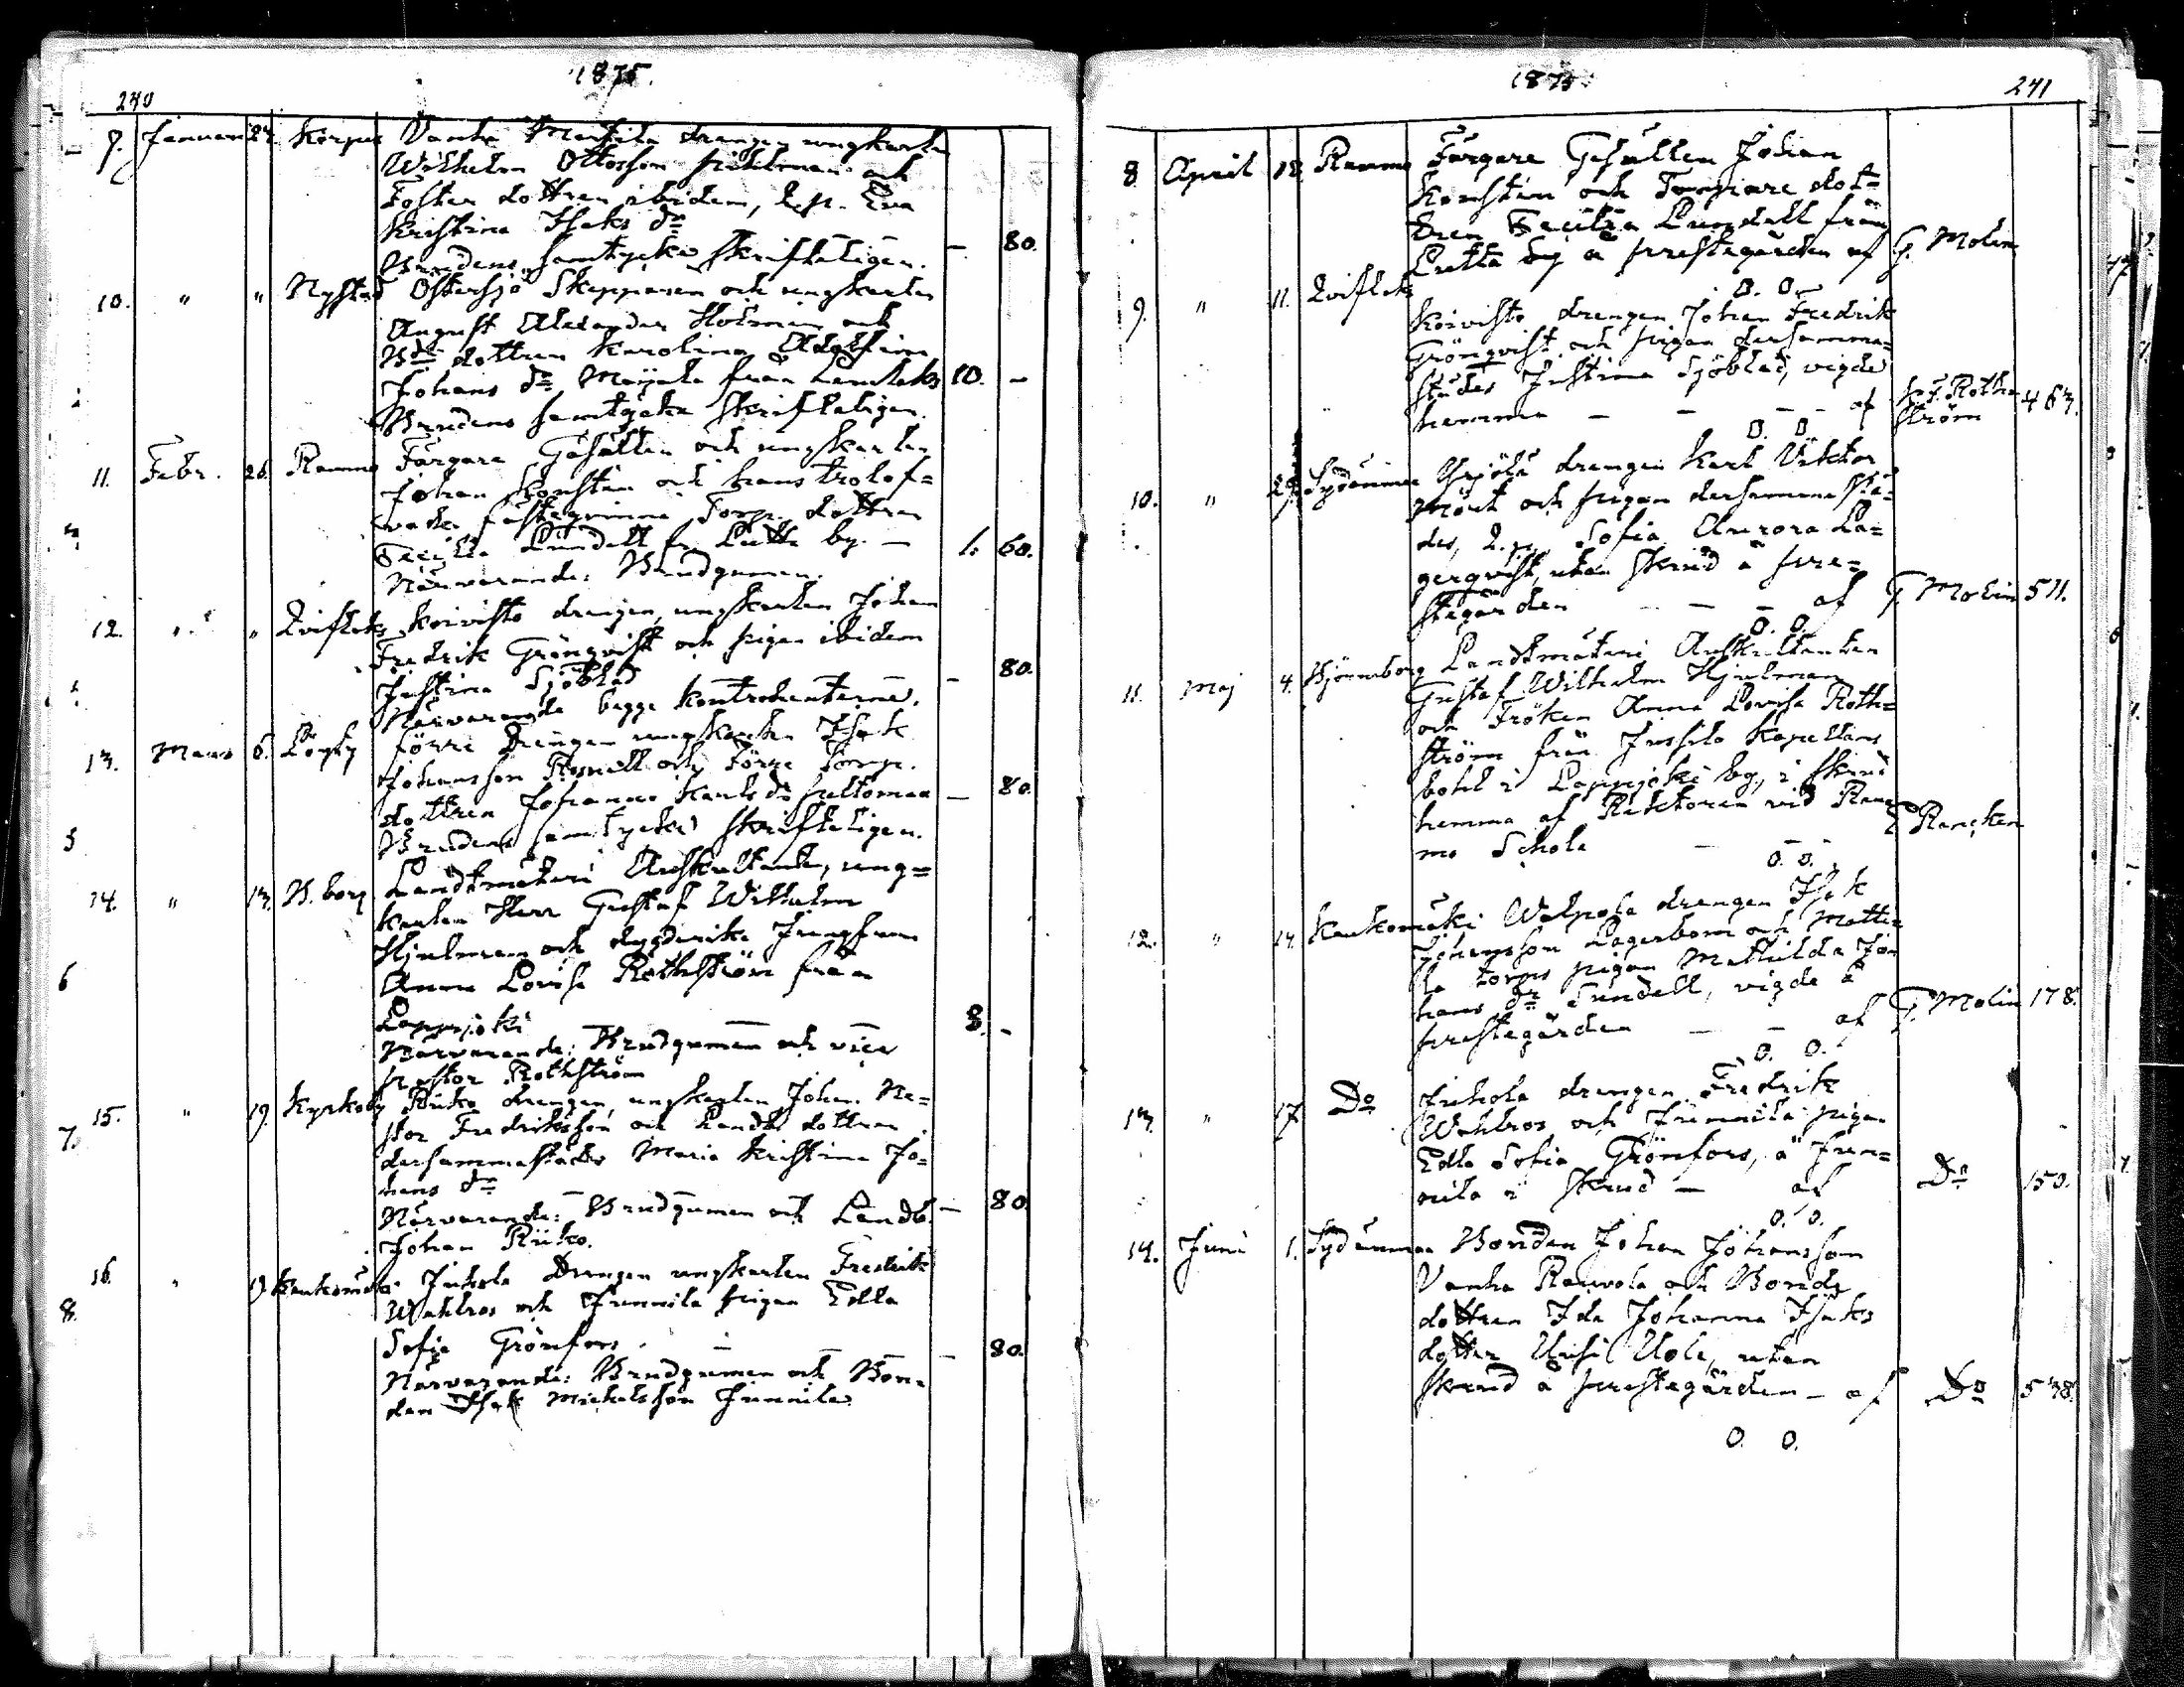 240
1875.
9. Januari 24. Korpus Vanha Markila drengen ungkarlen
Wilhelm Ottosson Pihlman och
Foster dottren ibidem, h. p. Eva
Kristina Isaks dr — 80.
Brudens samtycke skrifteligen.
10. " " Nystad Östersjö Skepparen och ungkarlen
August Alexander Holmén och
Bde dottren Karolina Adolfina
Johans dr Mäjala från Lamsteks 10. —
Brudens samtycke skrifteligen.
11. Febr. 26. Raumo Färgare Gesällen och ungkarlen
Johan Konstin och hans trolof=
vade fästeqvinna Torp. dottren
Cecilia Lundell fr. Lutta by. — 1. 60.
Närvarande: Brudgumen.
12. " " Qviflaks Koivisto drengen, ungkarlen Johan
Fredrik Grönqvist och pigan ibidem
Justina Sjöblad — 80.
Närvarande begge kontrahenterne.
13. Mars 6. Löyty Förri Drengen ungkarlen Isak
Johansson Rosnell och Förri Torp.
dottren Johanna Karls dr Peltomaa — 80.
Brudens samtycke skrifteligen.
14. " 13. B. borg Landtmäteri Auskultanten, ung=
karlen Herr Gustaf Wilhelm
Hjulman och dygderika Jungfrun
Anna Lovisa Rothström från
Lappijoki 8. —
Närvarande: Brudgumen och vice
pastor Rothström
15. " 19. Kyrkoby Riiko drengen, ungkarlen Johan Ne=
stor Fredriksson och Landb. dottren
dersammastädes Maria Kristina Jo=
hans dr
Närvarande: Brudgumen och Landb. — 80.
Johan Riiko.
16. " 19. Kaukomäki Juhola Drengen ungkarlen Fredrik
Wahlros och Junnila pigan Edla
Sofia Grönfors. — — — 80.
Närvarande: Brudgumen och Bon=
den Isak Mickelsson Junnila
1875.
241
8. April 12. Raumo Färgare Gesällen Johan
Konstin och Torpare dot=
tren Cecilia Lundell från
Lutta by å prestegården af G. Molin
O. O.
9. " 11. Qviflaks Koivisto drengen Johan Fredrik
Grönqvist och pigan dersamma=
städes Justina Sjöblad, vigde
hemma — — — af K. F. Roth=
ström 463.
O. O.
10. " 29. Sydänmaa Yrjölä drengen Karl Viktor
Mört och pigan dersammastä=
des, h. p. Sofia Aurora La=
gerqvist, utan skrud å pre=
stegården — — af G. Molin 511.
O. O.
11. Maj 4. Björneborg Landtmäteri Auskultanten
Gustaf Wilhelm Hjulman
och Fröken Anna Lovisa Roth=
ström från Jussila Kapellans
bohl i Lappijoki by, i skrud
hemma af Rektoren vid Rau=
mo Schola — — Rancken
O. O.
12. " 14. Kaukomäki Walpola drengen Isak
Johansson Lagerbom och Matti=
la torps pigan Mathilda Jo=
hans dr Sundell, vigde å
prestegården — — af G. Molin 178.
O. O.
13. " 17. Do Juhola drengen Fredrik
Wahlros och Junnila pigan
Edla Sofia Grönfors, å Jun=
nila i skrud — af Do 150.
O. O.
14. Juni 1. Sydänmaa Bonden Johan Johansson
Vanha Rauvola och Bonde
dottren Ida Johanna Isaks
dotter Uusi Uoti, utan
skrud å prestegården — af Do 538.
O. O.